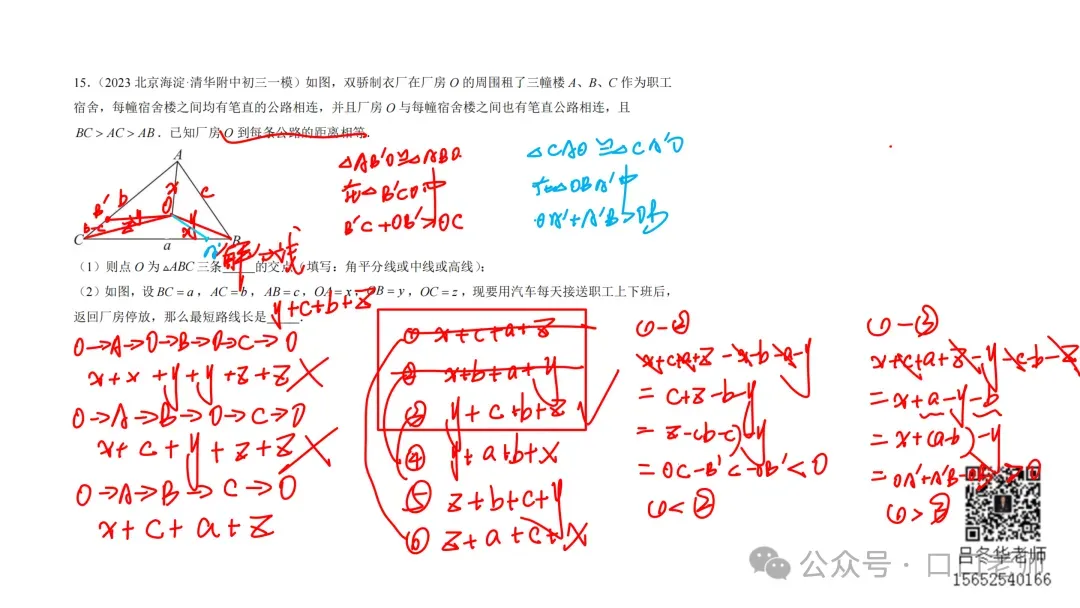 15.（2023 北京海淀·清华附中初三一模）如图，双骄制衣厂在厂房 O 的周围租了三幢楼 A、B、C 作为职工
宿舍，每幢宿舍楼之间均有笔直的公路相连，并且厂房 O 与每幢宿舍楼之间也有笔直公路相连，且
BC > AC > AB．已知厂房 O 到每条公路的距离相等．
△AB'O≌△ABO
在△B'CO中
B'C+OB'>OC
△CAO≌△CA'O
在△OBA'中
OA'+A'B>OB
A
B'
b
x
c
O
b-c
z
y
C
a
B
A'
（1）则点 O 为 △ABC 三条____的交点（填写：角平分线或中线或高线）；
（2）如图，设 BC = a，AC = b，AB = c，OA = x，OB = y，OC = z，现要用汽车每天接送职工上下班后，
返回厂房停放，那么最短路线长是____．
y+c+b+z
O→A→O→B→O→C→O
x+x+y+y+z+z
O→A→B→O→C→O
x+c+y+z+z
O→A→B→C→O
x+c+a+z
① x+c+a+z
② x+b+a+y
③ y+c+b+z
④ y+a+b+x
⑤ z+b+c+y
⑥ z+a+c+x
①-②
x+c+a+z-x-b-a-y
=c+z-b-y
=z-(b-c)-y
=OC-B'C-OB'<0
①<②
①-③
x+c+a+z-y-c-b-z
=x+a-y-b
=x+(a-b)-y
=OA'+A'B-OB>0
①>③
吕冬华老师
15652540166
公众号·口口老师